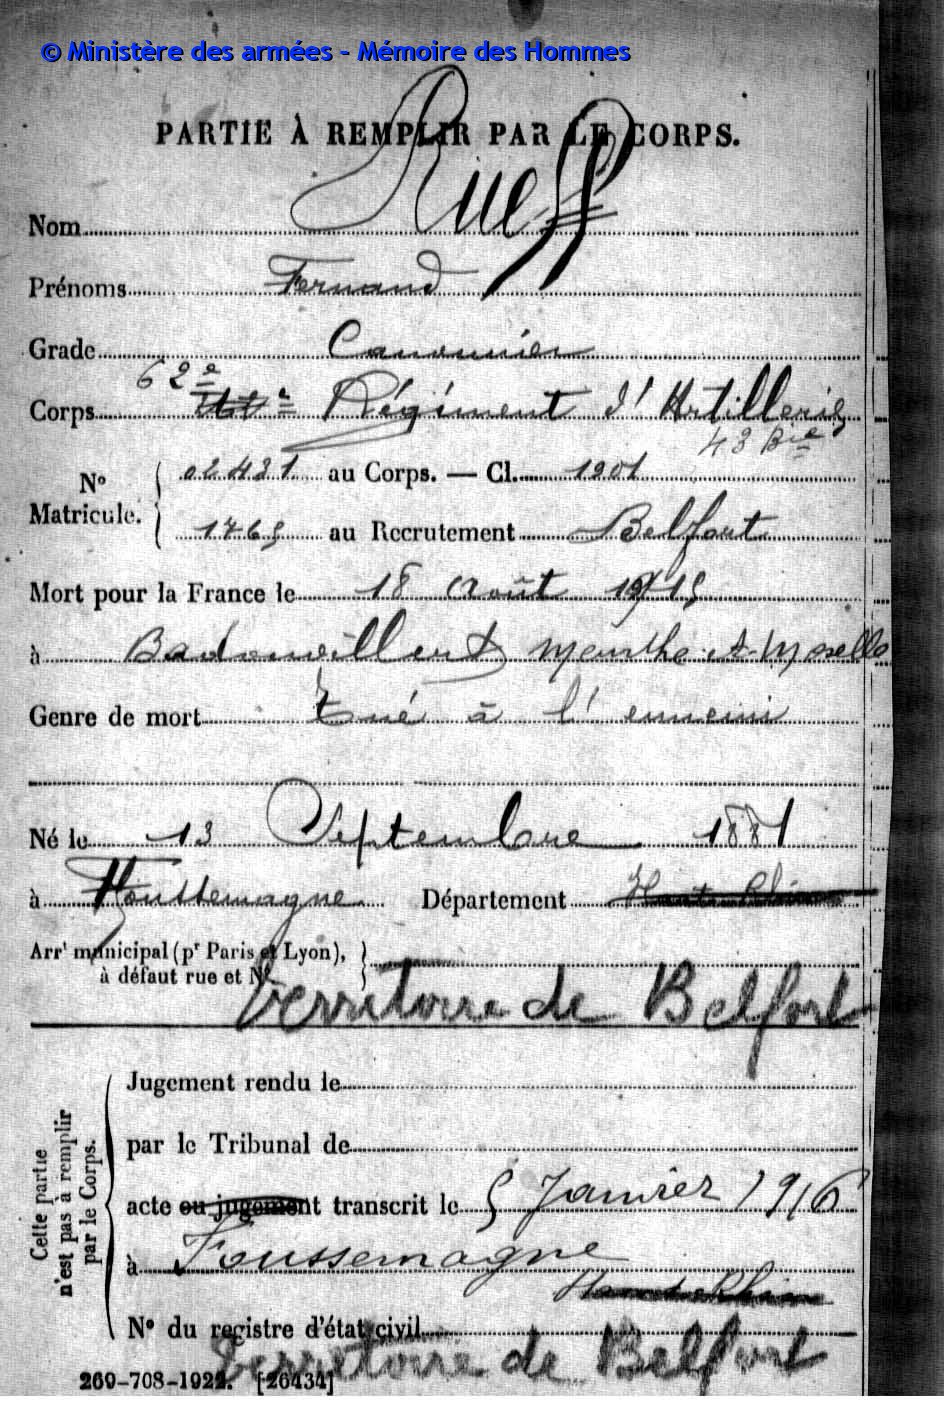 © Ministère des armées - Mémoire des Hommes
PARTIE À REMPLIR PAR LE CORPS.
Nom Rueff
Prénoms Fernand
Grade Canonnier
62e
Corps Régiment d'Artillerie
43 Bie
No Matricule. 02431 au Corps. — Cl. 1901
1765 au Recrutement Belfort
Mort pour la France le 18 Août 1915
à Badonvillers Meurthe-et-Moselle
Genre de mort tué à l'ennemi
Né le 13 Septembre 1881
à Foussemagne Département Haut-Rhin
Arrt municipal (pr Paris et Lyon),
à défaut rue et No.
Territoire de Belfort
Cette partie
n'est pas à remplir
par le Corps.
Jugement rendu le
par le Tribunal de
acte ou jugement transcrit le 5 Janvier 1916
à Foussemagne
Haut-Rhin
No du registre d'état civil
Territoire de Belfort
269-708-1922. [26434]